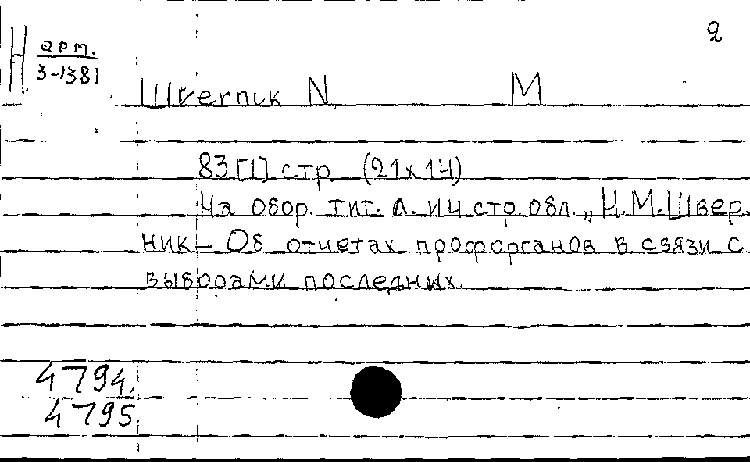 2
Н арт.
3-1381
Швегпик N M
83[1] стр. (21х14)
На обор. тит. л. и 4 стр обл. „Н.М.Швер
ник – Об отчетах профорганов в связи с
выборами последних.
4794.
4795.